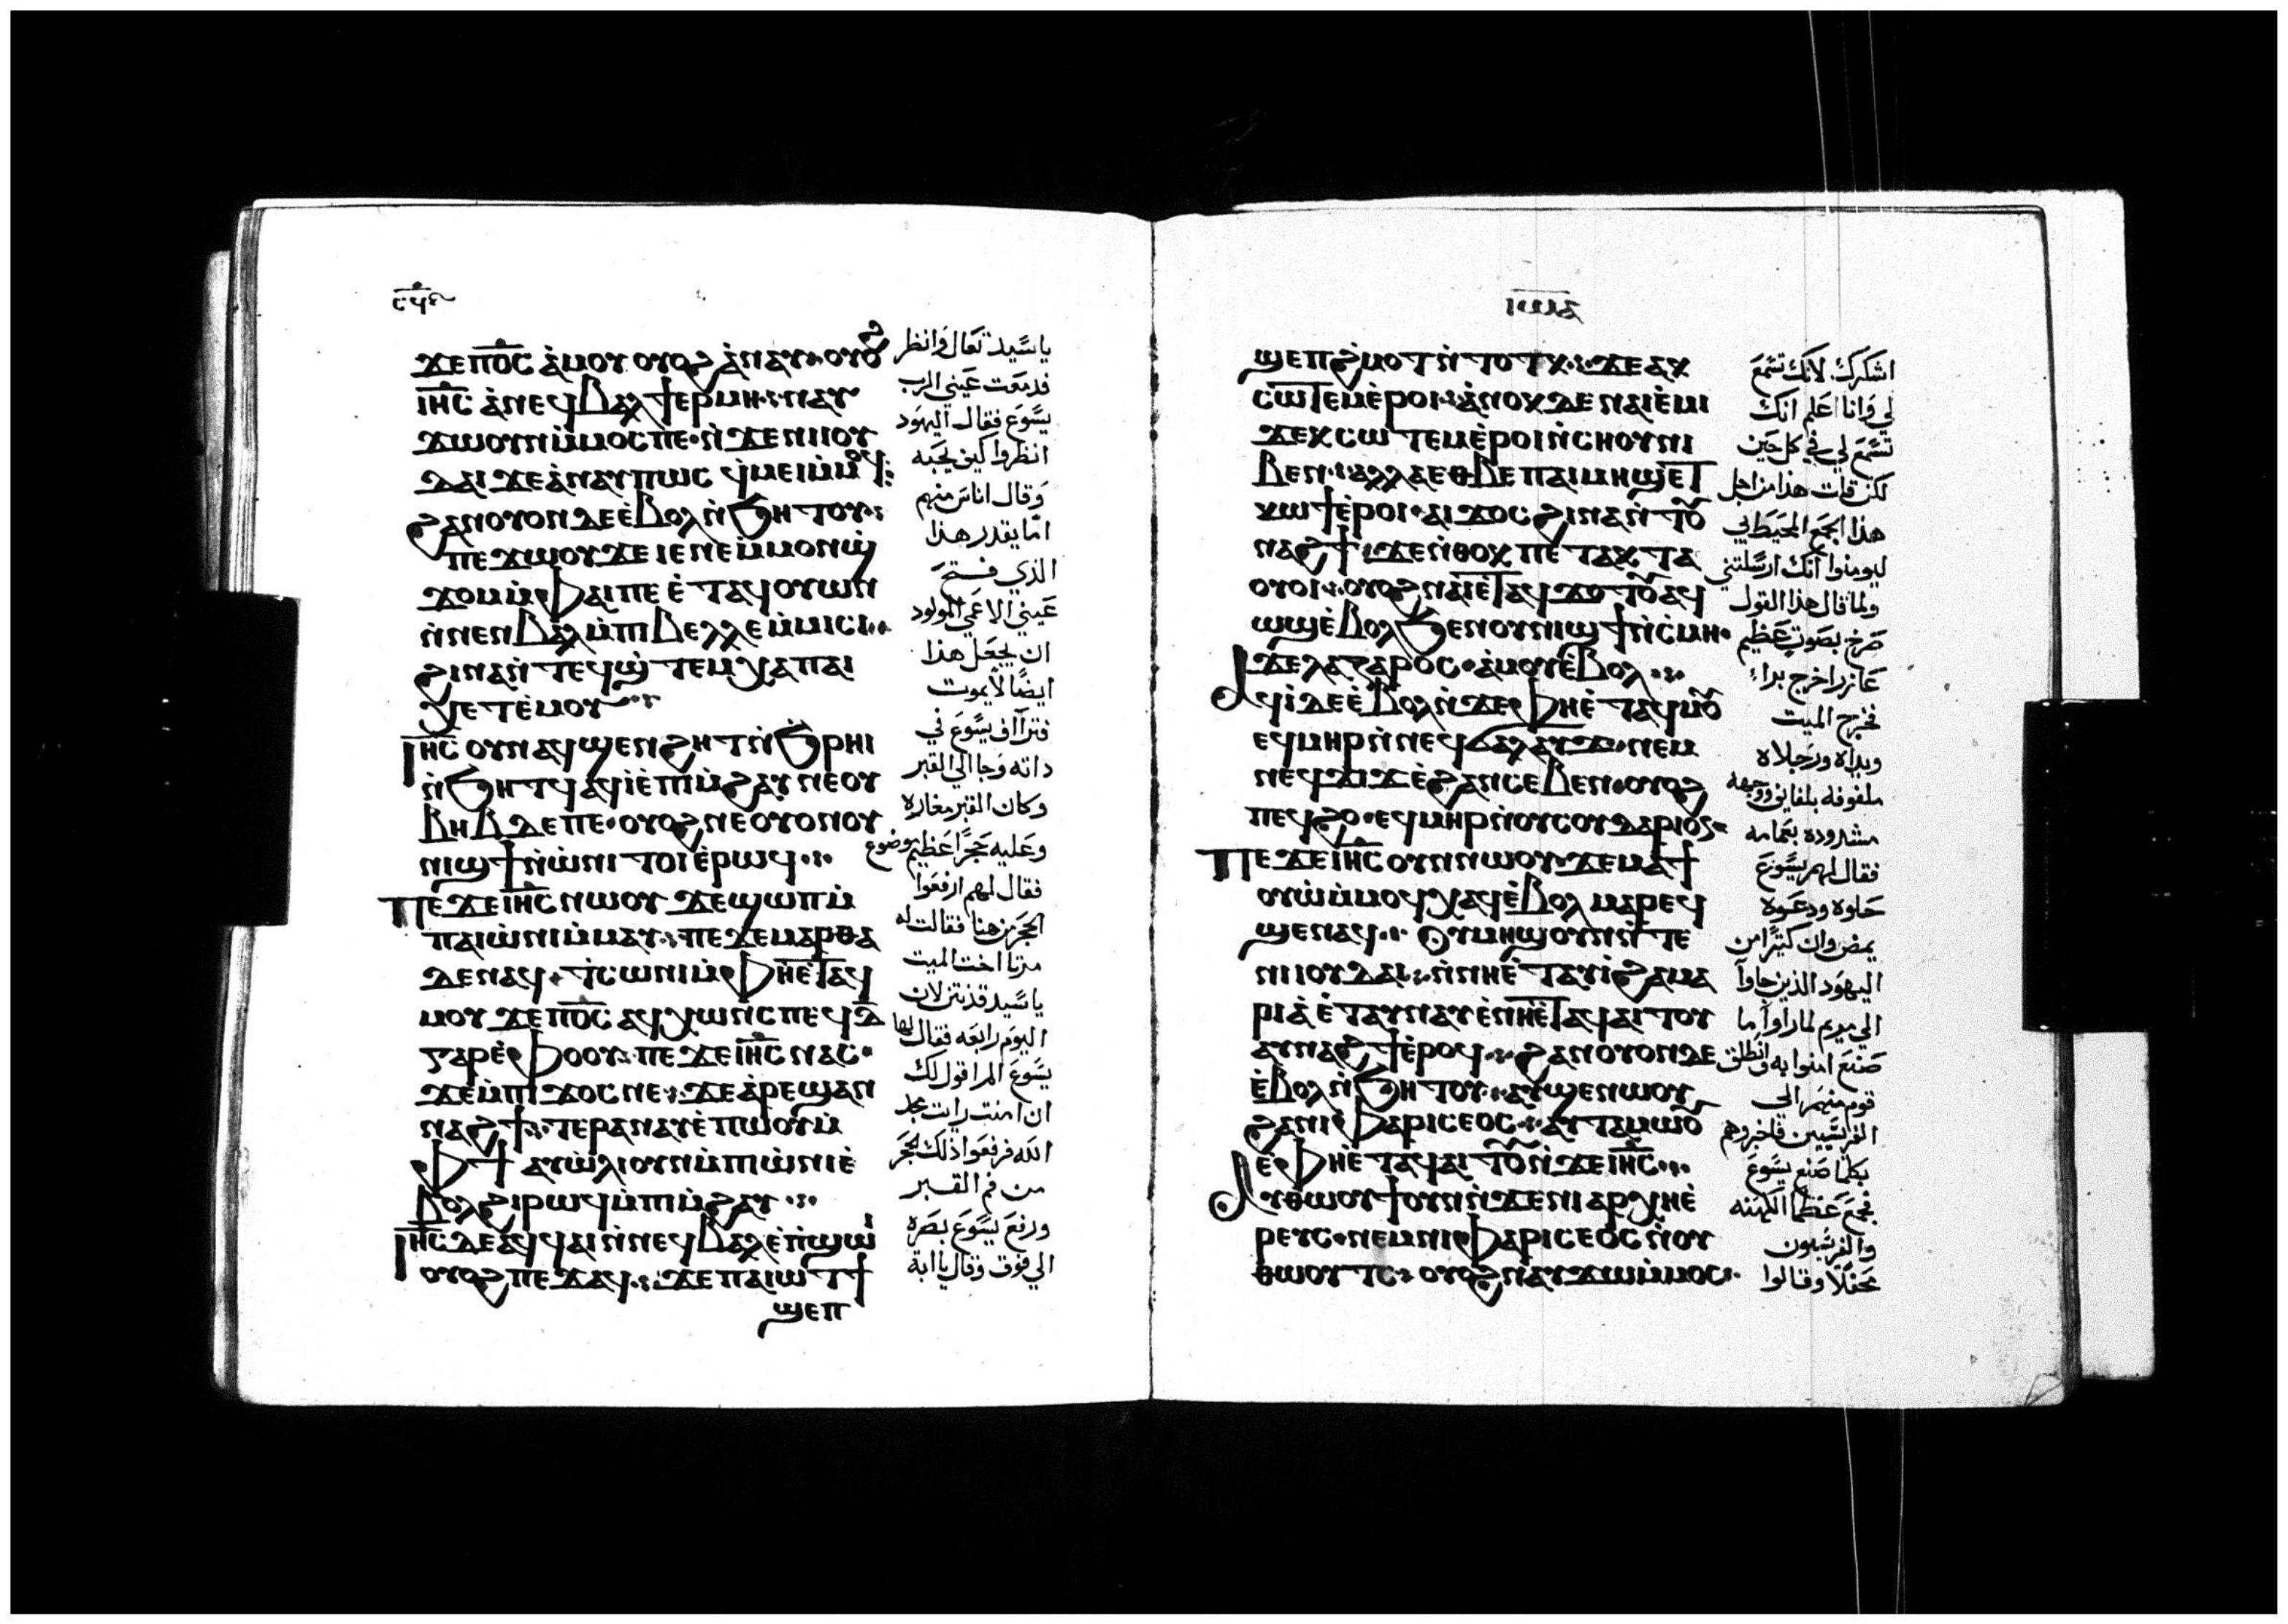 ϫⲉⲡ⳪ ⲁ̀ⲙⲟⲩ ⲟⲩⲟϩ ⲁ̀ⲛⲁⲩ ⲟⲩⲟϩ
ⲓⲏ̅ⲥ ⲁ̀ⲛⲉϥⲃⲁⲗϯⲉⲣⲙⲏ ⲛⲁⲩ
ϫⲱⲟⲩⲛⲙ̀ⲙⲟⲥⲡⲉ ⲛ̀ϫⲉⲛⲓⲓⲟⲩ
ⲇⲁⲓ ϫⲉⲁ̀ⲛⲁⲩ ⲡⲱⲥ ϥ̀ⲙⲉⲓⲙ̀ⲙⲟϥ
ϩⲁⲛⲟⲩⲟⲛ ⲇⲉ ⲉ̀ⲃⲟⲗ ⲛ̀ϧⲏⲧⲟⲩ
ⲡⲉϫⲱⲟⲩ ϫⲉ ⲓⲉ ⲛⲉⲙ̀ⲙⲟⲛϣ̀
ϫⲟⲙ ⲙ̀ⲫⲁⲓ ⲡⲉ ⲉ̀ⲧⲁϥⲟⲩⲱⲛ
ⲛ̀ⲛⲉⲛⲃⲁⲗ ⲙ̀ⲡⲓⲃⲉⲗⲗⲉ ⲙ̀ⲙⲓⲥⲓ
ϩⲓⲛⲁ ⲛ̀ⲧⲉϥϣ̀ⲧⲉⲙⲭⲁ ⲡⲁⲓ
ⲭⲉⲧ ⲉ̀ⲙⲟⲩ
ⲓⲏ̅ⲥ ⲟⲩⲛ ⲁϥϣⲉⲛϩⲏⲧ ⲛ̀ϧⲣⲏⲓ
ⲛ̀ϧⲏⲧϥ ⲁϥⲓ̀ ⲉ̀ⲡⲓⲙ̀ϩⲁⲩ ⲛⲉⲟⲩ
ⲃⲏⲃ ⲇⲉ ⲡⲉ ⲟⲩⲟϩ ⲛⲉⲟⲩⲟⲛⲟⲩ
ⲛⲓϣϯ ⲛ̀ⲱ̀ⲛⲓ ⲧⲟⲓ ⲉ̀ⲣⲱϥ
ⲡⲉϫⲉ ⲓⲏ̅ⲥ ⲛⲱⲟⲩ ϫⲉ ϣⲱⲡ ⲙ̀
ⲡⲁⲓⲱ̀ⲛⲓ ⲙ̀ⲙⲁⲩ ⲡⲉϫⲉ ⲙⲁⲣⲑⲁ
ⲇⲉ ⲛⲁϥ ϯⲥⲱⲛⲓ ⲙ̀ⲫⲏⲉ̀ⲧⲁϥ
ⲙⲟⲩ ϫⲉ ⲡ⳪ ⲁϥⲭⲱⲛⲥ ⲡⲉϥⲇ̅
ⲅⲁⲣ ⲉ̀ϩⲟⲟⲩ ⲡⲉϫⲉ ⲓⲏ̅ⲥ ⲛⲁⲥ
ϫⲉ ⲙ̀ⲡⲓϫⲟⲥ ⲛⲉ ϫⲉ ⲁ̀ⲣⲉϣⲁⲛ
ⲛⲁϩϯ ⲧⲉⲣⲁⲛⲁⲩ ⲉ̀ⲡⲱⲟⲩ ⲙ̀
ⲫϯ ⲁⲩⲱ̀ⲗⲓ ⲟⲩⲛ ⲙ̀ⲡⲓⲱ̀ⲛⲓ ⲉ̀
ⲃⲟⲗ ϩⲓⲣⲱϥ ⲙ̀ⲡⲓⲙ̀ϩⲁⲩ
ⲓⲏ̅ⲥ ⲇⲉ ⲁϥϥⲁⲓ ⲛ̀ⲛⲉϥⲃⲁⲗ ⲉ̀ⲡ̀ϣⲱⲓ
ⲟⲩⲟϩ ⲡⲉϫⲁϥ ϫⲉ ⲡⲁⲓⲱⲧ ϯ
ϣⲉⲡ
يا سيد تعال وانظر
فدمعت عيني الرب
يسوع فقال اليهود
انظروا كيف يحبه
وقال اناس منهم
اما يقدر هذا
الذي فتح
عيني الاعمي المولود
ان يجعل هذا
ايضا لا يموت
فتراآف يسوع في
داته وجا الي القبر
وكان القبر مغاره
وعليه حجرا عظيم موضوع
فقال لهم ارفعوا
الحجر من هنا فقالت له
مرتا اخت الميت
يا سيد قد نتن لان
اليوم رابعه فقال لها
يسوع الم اقول لك
ان امنت رايت مجد
الله فرفعوا ذلك الحجر
من فم القبر
ورفع يسوع بصره
الي فوق وقال يا ابة
ϣⲉⲡϩ̀ⲙⲟⲧ ⲛ̀ⲧⲟⲧⲕ ϫⲉ ⲁⲕ
ⲥⲱⲧⲉⲙ ⲉ̀ⲣⲟⲓ ⲁ̀ⲛⲟⲕ ⲇⲉ ⲛⲁⲓⲉ̀ⲙⲓ
ϫⲉ ⲕⲥⲱⲧⲉⲙ ⲉ̀ⲣⲟⲓ ⲛ̀ⲥⲏⲟⲩ ⲛⲓ
ⲃⲉⲛ ⲁⲗⲗⲁ ⲉⲑⲃⲉ ⲡⲁⲓⲙⲏϣ ⲉⲧ
ⲕⲱϯ ⲉ̀ⲣⲟⲓ ⲁⲓϫⲟⲥ ϩⲓⲛⲁ ⲛ̀ⲧⲟⲩ
ⲛⲁϩϯ ϫⲉ ⲛ̀ⲑⲟⲕ ⲡⲉⲧⲁⲕⲧⲁ
ⲟⲩⲟⲓ ⲟⲩⲟϩ ⲛⲁⲓ ⲉ̀ⲧⲁϥϫⲟⲧⲟⲩ ⲁϥ
ⲱϣ ⲉ̀ⲃⲟⲗ ϧⲉⲛ ⲟⲩⲛⲓϣϯ ⲛ̀ⲥ̀ⲙⲏ
ϫⲉ ⲗⲁⲍⲁⲣⲟⲥ ⲁ̀ⲙⲟⲩ ⲉ̀ⲃⲟⲗ
ⲁϥⲓ̀ ⲇⲉ ⲉ̀ⲃⲟⲗ ⲛ̀ϫⲉ ⲫⲏⲉ̀ⲧⲁϥⲙⲟⲩ
ⲉϥⲙⲏⲣ ⲛ̀ⲛⲉϥϭⲁⲗⲁⲩϫ ⲛⲉⲙ
ⲛⲉϥϫⲓϫ ⲉ̀ϩⲁⲛⲥⲉⲃⲉⲛ ⲟⲩⲟϩ
ⲡⲉϥϩⲟ ⲉϥⲙⲏⲣ ⲛ̀ⲟⲩⲥⲟⲩⲇⲁⲣⲓⲟⲥ
ⲡⲉϫⲉ ⲓⲏ̅ⲥ ⲟⲩⲛ ⲛⲱⲟⲩ ϫⲉ ⲙⲁϯ
ⲟⲩⲱ̀ ⲙ̀ⲙⲟϥ ⲭⲁϥ ⲉ̀ⲃⲟⲗ ⲙⲁⲣⲉϥ
ϣⲉⲛⲁϥ ⲟⲩⲙⲏϣ ⲟⲩⲛ ⲛ̀ⲧⲉ
ⲛⲓⲓⲟⲩⲇⲁⲓ ⲛ̀ⲛⲏⲉ̀ⲧⲁⲩⲓ̀ ϩⲁ ⲙⲁ
ⲣⲓⲁ ⲉ̀ⲧⲁⲩⲛⲁⲩ ⲉ̀ⲛⲏⲉ̀ⲧⲁϥⲁⲓⲧⲟⲩ
ⲁⲩⲛⲁϩϯ ⲉ̀ⲣⲟϥ ϩⲁⲛⲟⲩⲟⲛ ⲇⲉ
ⲉ̀ⲃⲟⲗ ⲛ̀ϧⲏⲧⲟⲩ ⲁⲩϣⲉⲛⲱⲟⲩ
ϩⲁ ⲛⲓⲫⲁⲣⲓⲥⲉⲟⲥ ⲁⲩⲧⲁⲙⲱⲟⲩ
ⲉ̀ⲫⲏⲉ̀ⲧⲁϥⲁⲓⲧⲟⲩ ⲛ̀ϫⲉ ⲓⲏ̅ⲥ
ⲁⲩⲑⲱⲟⲩϯ ⲟⲩⲛ ⲛ̀ϫⲉ ⲛⲓⲁⲣⲭⲏⲉ̀
ⲣⲉⲩⲥ ⲛⲉⲙ ⲛⲓⲫⲁⲣⲓⲥⲉⲟⲥ ⲛ̀ⲟⲩ
ⲑⲱⲟⲩⲧⲥ ⲟⲩⲟϩ ⲛⲁⲩϫⲱ ⲙ̀ⲙⲟⲥ
اشكرك لانك تسمع
لي وانا اعلم انك
تسمع لي في كل حين
لكن قلت هذا من اجل
هذا الجمع المحيط بي
ليومنوا انك ارسلتني
ولما قال هذا القول
صرخ بصوت عظيم
عازر اخرج برا
فخرج الميت
ويداه ورجلاه
ملفوفه بلفايف ووجهه
مشدوده بعمامه
فقال لهم يسوع
حلوه ودعوه
يمض وان كثيرا من
اليهود الذين جاوا
الي مريم لما راوا ما
صنع امنوا به وانطلق
قوم منهم الي
الفريسيين فاخبروهم
بكلما صنع يسوع
فجمع عظما الكهنه
والفريسيون
محفلا وقالوا